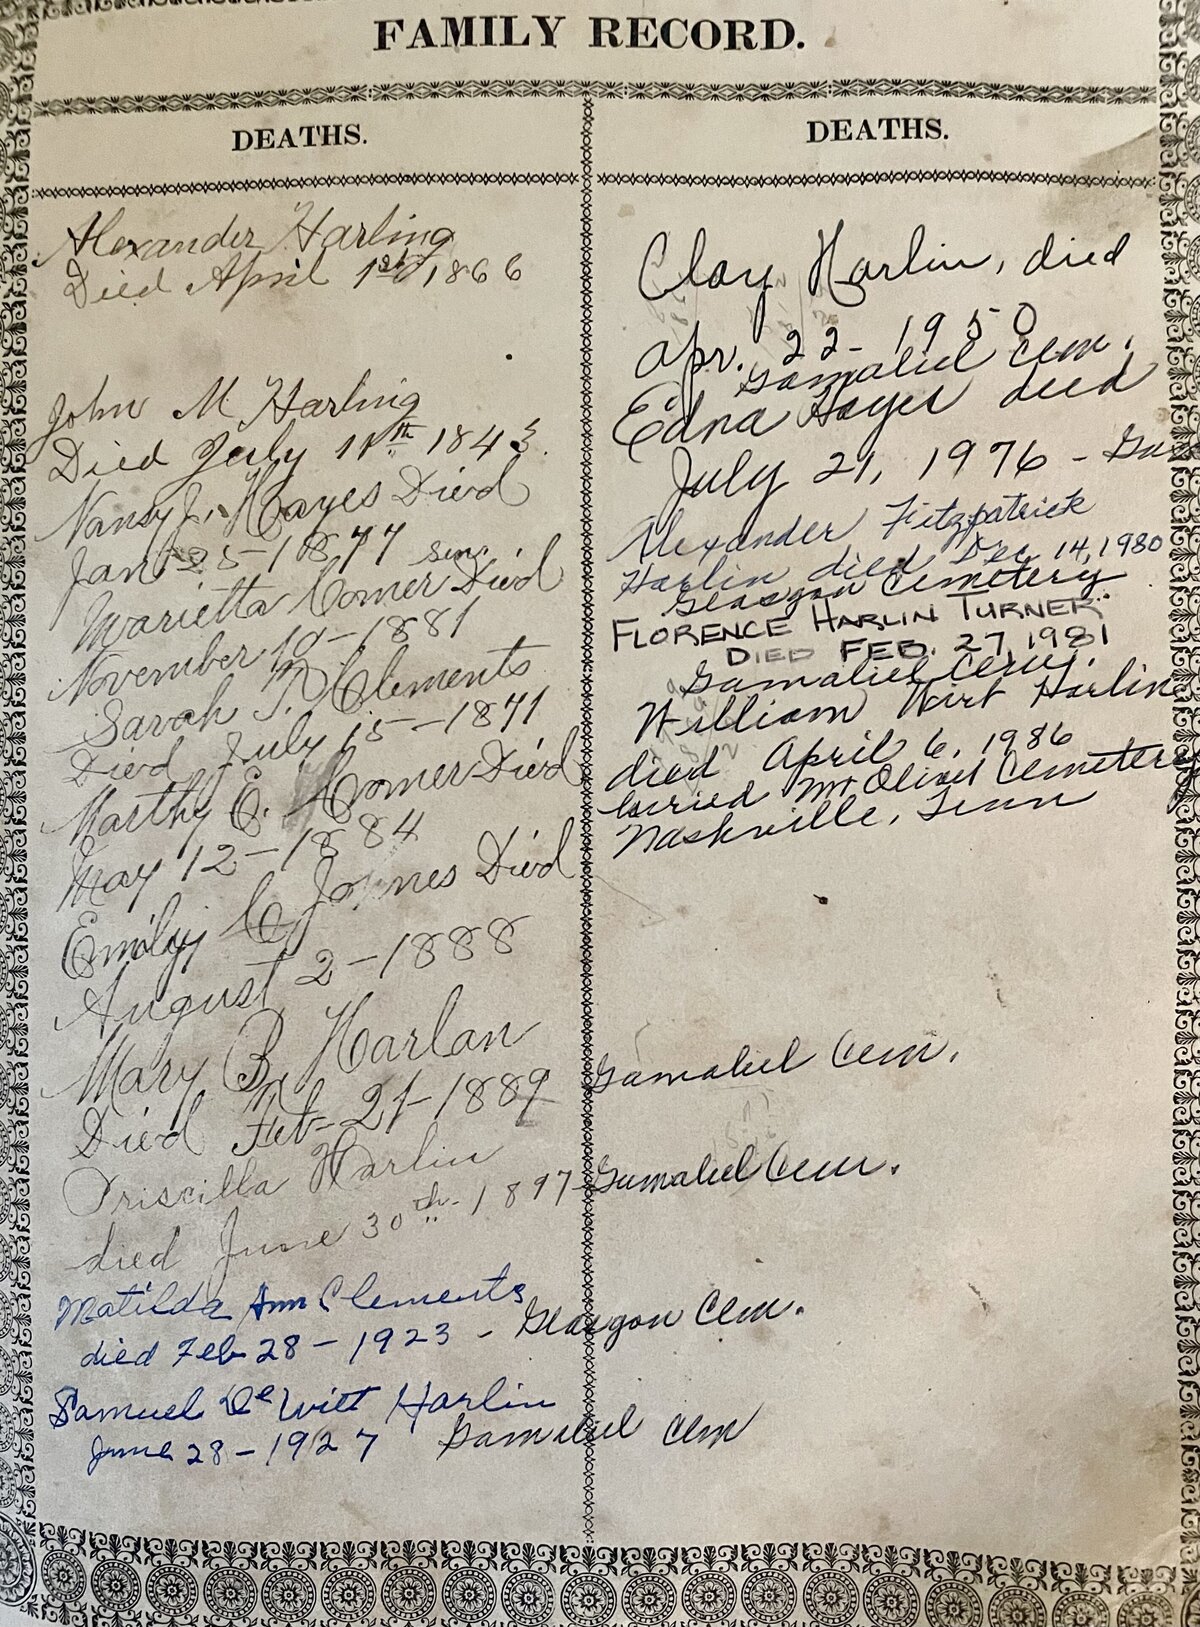 FAMILY RECORD.
DEATHS.
Alexander Harling
Died April 1st 1866
John M Harling
Died July 11th 1843
Nansy J. Hayes Died
Jan 25-1877
Marietta Comer Died
November 10-1881
Sarah T. Clements
Died July 15-1871
Marthy E. Comer Died
May 12-1884
Emily C Joynes Died
August 2-1888
Mary B. Harlan
Died Feb-21-1889 Gamaliel Cem.
Priscilla Harlin
died June 30th 1897-Gamaliel Cem.
Matilda Ann Clements
died Feb 28-1923 - Glasgow Cem.
Samuel DeWitt Harlin
June 28-1927 Gamaliel Cem
DEATHS.
Clay Harlin, died
Apr. 22-1950
Gamaliel Cem.
Edna Hayes died
July 21, 1976 -
Alexander Fitzpatrick
Harlin died Dec 14, 1980
Glasgow Cemetery
FLORENCE HARLIN TURNER
DIED FEB. 27, 1981
Gamaliel Cem.
William Wirt Harlin
died April 6, 1986
buried Mt Olivet Cemetery
Nashville, Tenn